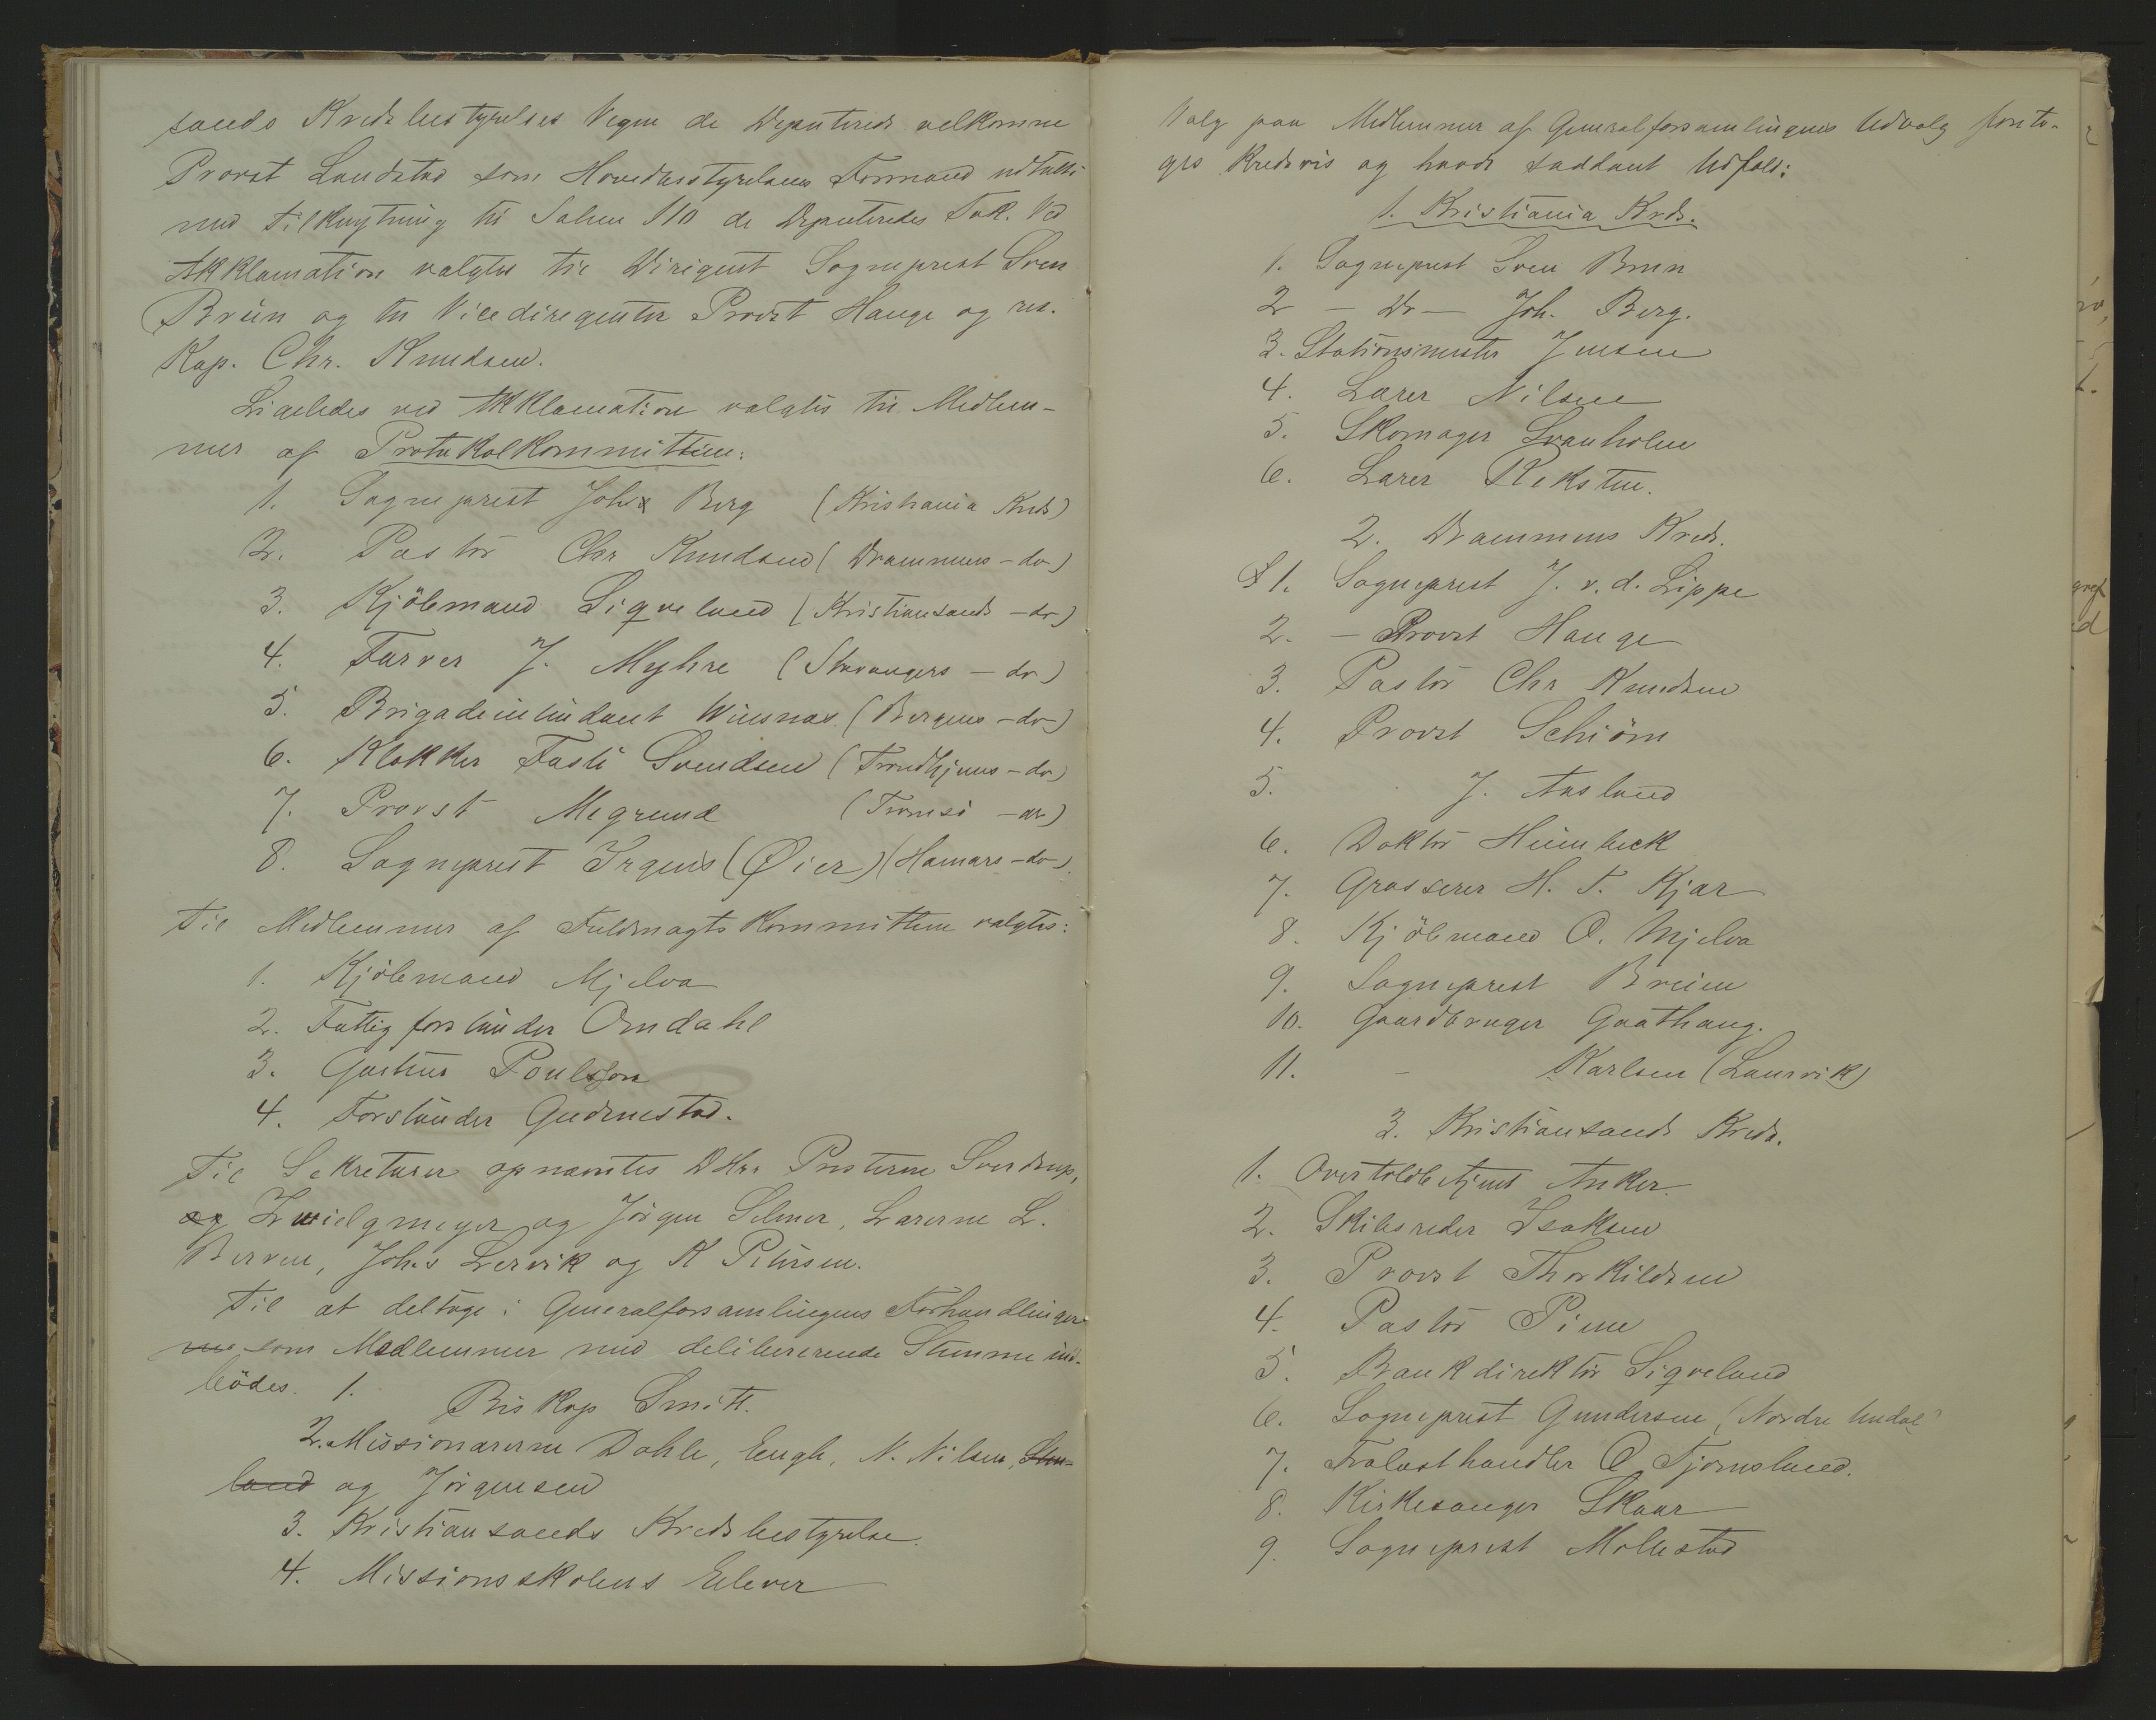 sands Kredsbestyrelses Vegne de Deputerede velkomne
Provst Landstad som Hovedbestyrelsens Formand udtalte
med Tilknytning til Salme 110 de Deputeredes Tak. Ved
Akklamation valgtes til Dirigent Sogneprest Sven
Brün og til Vicedirigenter Provst Hauge og res.
Kap. Chr. Knudsen.
Ligeledes ved Akklamation valgtes til Medlem-
mer af Protokolkommitteen:
1. Sogneprest Johs Berg (Kristiania Kreds)
2. Pastor Chr Knudsen (Drammens - do -)
3. Kjöbmand Siqveland (Kristiansands - do)
4. Farver J. Myhre (Stavangers - do)
5. Brigadeintendant Wiesnæs (Bergens - do -)
6. Klokker Fasti Svendsen (Trondhjems - do)
7. Provst Megrund (Tromsö - do)
8. Sogneprest Irgens (Øier) (Hamars - do -)
Til Medlemmer af Fuldmagtskommitteen valgtes:
1. Kjöbmand Mjelva
2. Fattigforstander Omdahl
3. Gartner Poulsson
4. Forstander Gudmestad.
Til Sekretærer opnævntes DHrr Presterne Sverdrup,
og Zwielgmeyer og Jörgen Selmer, Lærerne L.
Berven, Johs Lervik og K Petersen.
Til at deltage i Generalforsamlingens Forhandlinger
ne som Medlemmer med delibererende Stemme ind-
bödes. 1. Biskop Smitt.
2. Missionærerne Dahle, Engh, N. Nilsen, Sten-
land og Jörgensen
3. Kristiansands Kredsbestyrelse.
4. Missionsskolens Elever
Valg paa Medlemmer af Generalforsamlingens Udvalg foreto-
ges Kredsvis og havde saadant Udfald:
1. Kristiania Kreds.
1. Sogneprest Sven Brun
2 - Do - Joh. Berg.
3. Stationsmester Jensen
4. Lærer Nilsen
5. Skomager Svanholm
6. Lærer Reksten.
2. Drammens Kreds.
1. Sogneprest J. v. d. Lippe
2. - Provst Hauge
3. Pastor Chr Knudsen
4. Provst Schiörn
5. J. Aasland
6. Doktor Heimbeck
7. Grosserer H. T. Kjær
8. Kjöbmand O. Mjelva
9. Sogneprest Breien
10. Gaardbruger Gaathaug.
11. - Karlsen (Laurvik)
3. Kristiansands Kreds.
1. Overtoldbetjent Anker.
2. Skibsreder Isaksen
3. Provst Thorkildsen
4. Pastor Piene
5. Bankdirektör Siqveland
6. Sogneprest Gundersen (Nordre Undal)
7. Trælasthandler O Tjomsland.
8. Kirkesanger Skaar
9. Sogneprest Mollestad